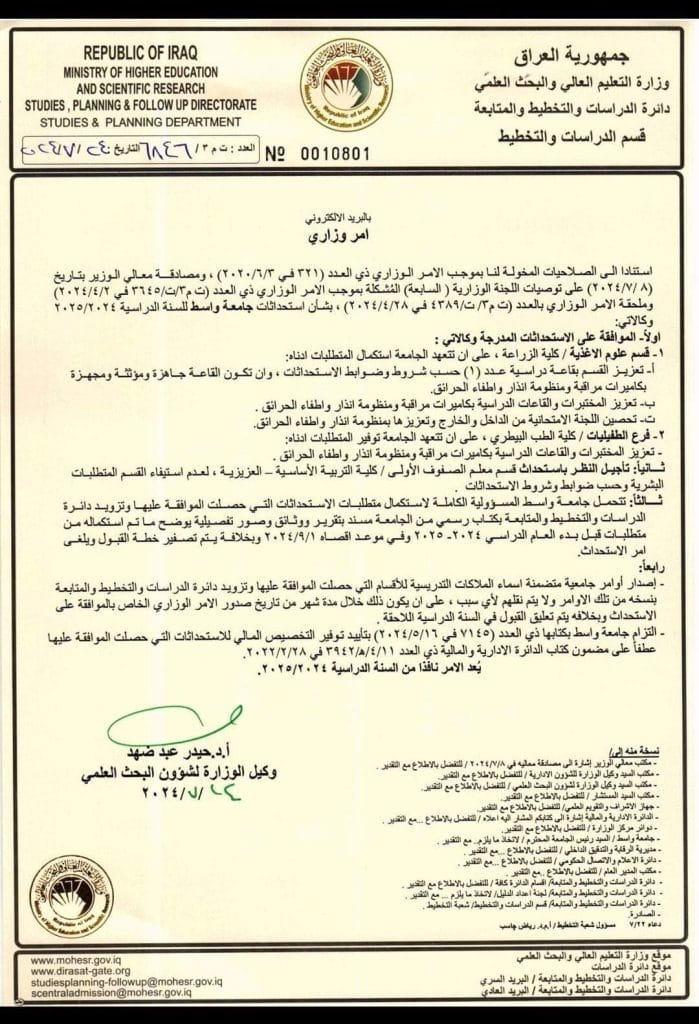 REPUBLIC OF IRAQ
MINISTRY OF HIGHER EDUCATION
AND SCIENTIFIC RESEARCH
STUDIES , PLANNING & FOLLOW UP DIRECTORATE
STUDIES & PLANNING DEPARTMENT
جمهورية العراق
وزارة التعليم العالي والبحث العلمي
دائرة الدراسات والتخطيط والمتابعة
قسم الدراسات والتخطيط
العدد : ت م ٣/ ٦٨٤٦ التاريخ ٢٠٢٤/٧/٢٤
Nº 0010801
بالبريد الالكتروني
امر وزاري
استنادا الى الصلاحيات المخولة لنا بموجب الامر الوزاري ذي العدد (٣٢١ في ٢٠٢٠/٦/٣) ، ومصادقة معالي الوزير بتاريخ
(٢٠٢٤/٧/٨) على توصيات اللجنة الوزارية ( السابعة) المُشكلة بموجب الامر الوزاري ذي العدد (ت م٣/ت/٣٦٤٥ في ٢٠٢٤/٤/٢)
وملحقة الامر الوزاري بالعدد (ت م٣/ ت/٤٣٨٩ في ٢٠٢٤/٤/٢٨) ، بشأن استحداثات جامعة واسط للسنة الدراسية ٢٠٢٥/٢٠٢٤
وكالاتي:
اولاً- الموافقة على الاستحداثات المدرجة وكالاتي :
١- قسم علوم الاغذية / كلية الزراعة ، على ان تتعهد الجامعة استكمال المتطلبات ادناه:
أ- تعزيز القسم بقاعة دراسية عدد (١) حسب شروط وضوابط الاستحداثات ، وان تكون القاعة جاهزة ومؤثثة ومجهزة
بكاميرات مراقبة ومنظومة انذار واطفاء الحرائق.
ب- تعزيز المختبرات والقاعات الدراسية بكاميرات مراقبة ومنظومة انذار واطفاء الحرائق .
ت- تحصين اللجنة الامتحانية من الداخل والخارج وتعزيزها بمنظومة انذار واطفاء الحرائق .
٢- فرع الطفيليات / كلية الطب البيطري ، على ان تتعهد الجامعة توفير المتطلبات ادناه:
- تعزيز المختبرات والقاعات الدراسية بكاميرات مراقبة ومنظومة انذار واطفاء الحرائق .
ثانياً: تأجيل النظر باستحداث قسم معلم الصفوف الأولى / كلية التربية الأساسية – العزيزية ، لعدم استيفاء القسم المتطلبات
البشرية وحسب ضوابط وشروط الاستحداثات .
ثالثاً: تتحمل جامعة واسط المسؤولية الكاملة لاستكمال متطلبات الاستحداثات التي حصلت الموافقة عليها وتزويد دائرة
الدراسات والتخطيط والمتابعة بكتاب رسمي من الجامعة مسند بتقرير ووثائق وصور تفصيلية يوضح ما تم استكماله من
متطلبات قبل بدء العام الدراسي ٢٠٢٤- ٢٠٢٥ وفي موعد اقصاه ٢٠٢٤/٩/١ وبخلافة يتم تصفير خطة القبول ويلغى
امر الاستحداث.
رابعاً:
- إصدار أوامر جامعية متضمنة اسماء الملاكات التدريسية للأقسام التي حصلت الموافقة عليها وتزويد دائرة الدراسات والتخطيط والمتابعة
بنسخه من تلك الاوامر ولا يتم نقلهم لأي سبب ، على ان يكون ذلك خلال مدة شهر من تاريخ صدور الامر الوزاري الخاص بالموافقة على
الاستحداث وبخلافه يتم تعليق القبول في السنة الدراسية للاحقة .
- التزام جامعة واسط بكتابها ذي العدد (٧١٤٥ في ٢٠٢٤/٥/١٦) بتأييد توفير التخصيص المالي للاستحداثات التي حصلت الموافقة عليها
عطفاً على مضمون كتاب الدائرة الادارية والمالية ذي العدد ٣٩٤٢/ه/٤/١١ في ٢٠٢٢/٢/٢٨.
يُعد الامر نافذا من السنة الدراسية ٢٠٢٥/٢٠٢٤.
أ.د.حيدر عبد ضهد
وكيل الوزارة لشؤون البحث العلمي
٢٠٢٤/٧/٢٤
نسخة منه إلى/
- مكتب معالي الوزير إشارة الى مصادقة معاليه في ٢٠٢٤/٧/٨ / للتفضل بالاطلاع مع التقدير .
- مكتب السيد وكيل الوزارة للشؤون الادارية / للتفضل بالاطلاع مع التقدير.
- مكتب السيد وكيل الوزارة لشؤون البحث العلمي / للتفضل بالاطلاع مع التقدير.
- مكتب السيد المستشار / للتفضل بالاطلاع مع التقدير.
- جهاز الاشراف والتقويم العلمي/ للتفضل بالاطلاع مع التقدير.
- الدائرة الادارية والمالية إشارة الى كتابكم المشار اليه اعلاه / للتفضل بالاطلاع ...مع التقدير .
- دوائر مركز الوزارة / للتفضل بالاطلاع مع التقدير.
- جامعة واسط / السيد رئيس الجامعة المحترم / لاتخاذ ما يلزم.. مع التقدير .
- مديرية الرقابة والتدقيق الداخلي / للتفضل بالاطلاع ...مع التقدير .
- دائرة الاعلام والاتصال الحكومي / للتفضل بالاطلاع ...مع التقدير .
- مكتب المدير العام / للتفضل بالاطلاع ..مع التقدير .
- دائرة الدراسات والتخطيط والمتابعة/ اقسام الدائرة كافة / للتفضل بالاطلاع مع التقدير .
- دائرة الدراسات والتخطيط والمتابعة/ لجنة اعداد الدليل/ لاتخاذ ما يلزم ... مع التقدير .
- دائرة الدراسات والتخطيط والمتابعة/ قسم الدراسات والتخطيط/ شعبة التخطيط .
- الصادرة.
دعاء ٧/٢٢ مسؤول شعبة التخطيط / أ.م.د. رياض جاسب
www.mohesr.gov.iq
www.dirasat-gate.org
studiesplanning-followup@mohesr.gov.iq
scentraladmission@mohesr.gov.iq
موقع وزارة التعليم العالي والبحث العلمي
موقع دائرة الدراسات
دائرة الدراسات والتخطيط والمتابعة / البريد السري
دائرة الدراسات والتخطيط والمتابعة / البريد العادي